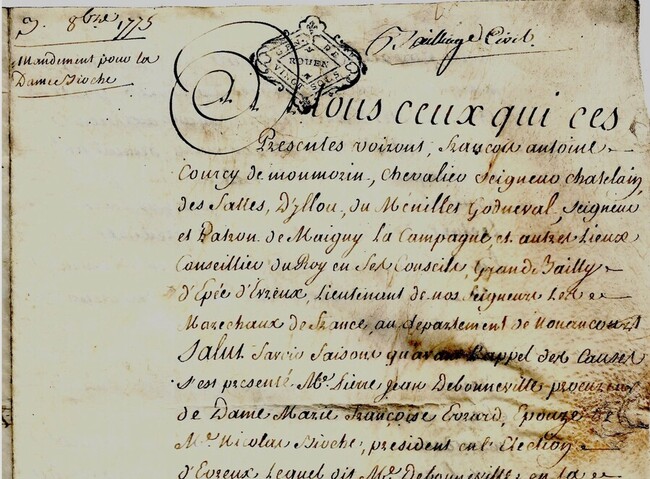 3. 8bre 1775
Mandement pour la
Dame Bioche
Bailliage Civil.
GEN. DE
ROUEN
SOLS
A Tous ceux qui ces
Presentes voiront, françois antoine
Courcy de monmorin, chevalier Seigneur chatelain
des Salles, D'yllou, du Ménillet Godneval, Seigneur
et Patron de Maigny La Campagne, et autres Lieux
Conseillier du Roy en Ses Conseils Grand Bailly
d'Epée d'Evreux, Lieutenant de nos Seigneurs Les
Marechaux de france, au département de Nonancourt
Salut. Savoir Faisons qu'avant L'appel des Causes
s'est presenté Me. Pierre Jean Debonneville procureur
de Dame Marie Françoise Evrard, Epouze de
Me. Nicolas Bioche, président en l'Election
d'Evreux Lequel dit Me. Debonneville, en la